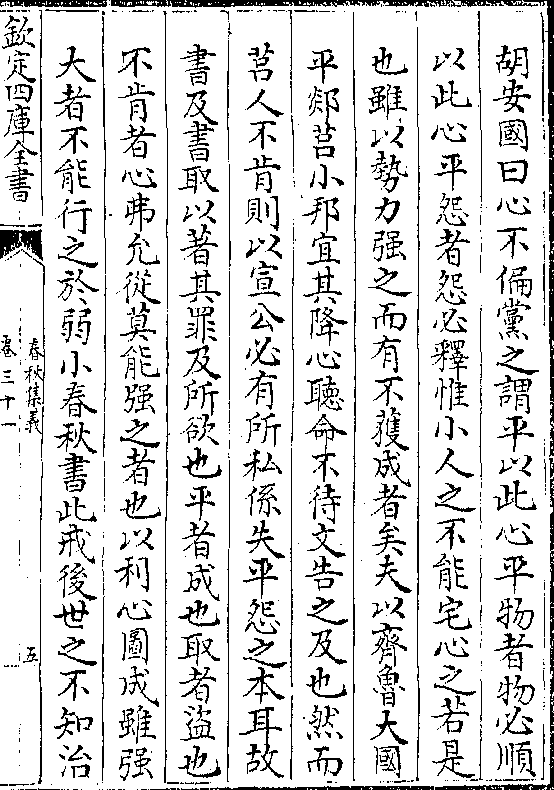 胡安國曰心不偏黨之謂平以此心平物者物必順
以此心平怨者怨必釋惟小人之不能宅心之若是
也雖以勢力强之而有不獲成者矣夫以齊魯大國
平郯莒小邦宜其降心聽命不待文告之及也然而
莒人不肯則以宣公必有所私係失平怨之本耳故
書及書取以著其罪及所欲也平者成也取者盜也
不肯者心弗允從莫能强之者也以利心圖成雖强
大者不能行之於弱小春秋書此戒後世之不知治
欽定四庫全書
春秋集義
卷三十一
五